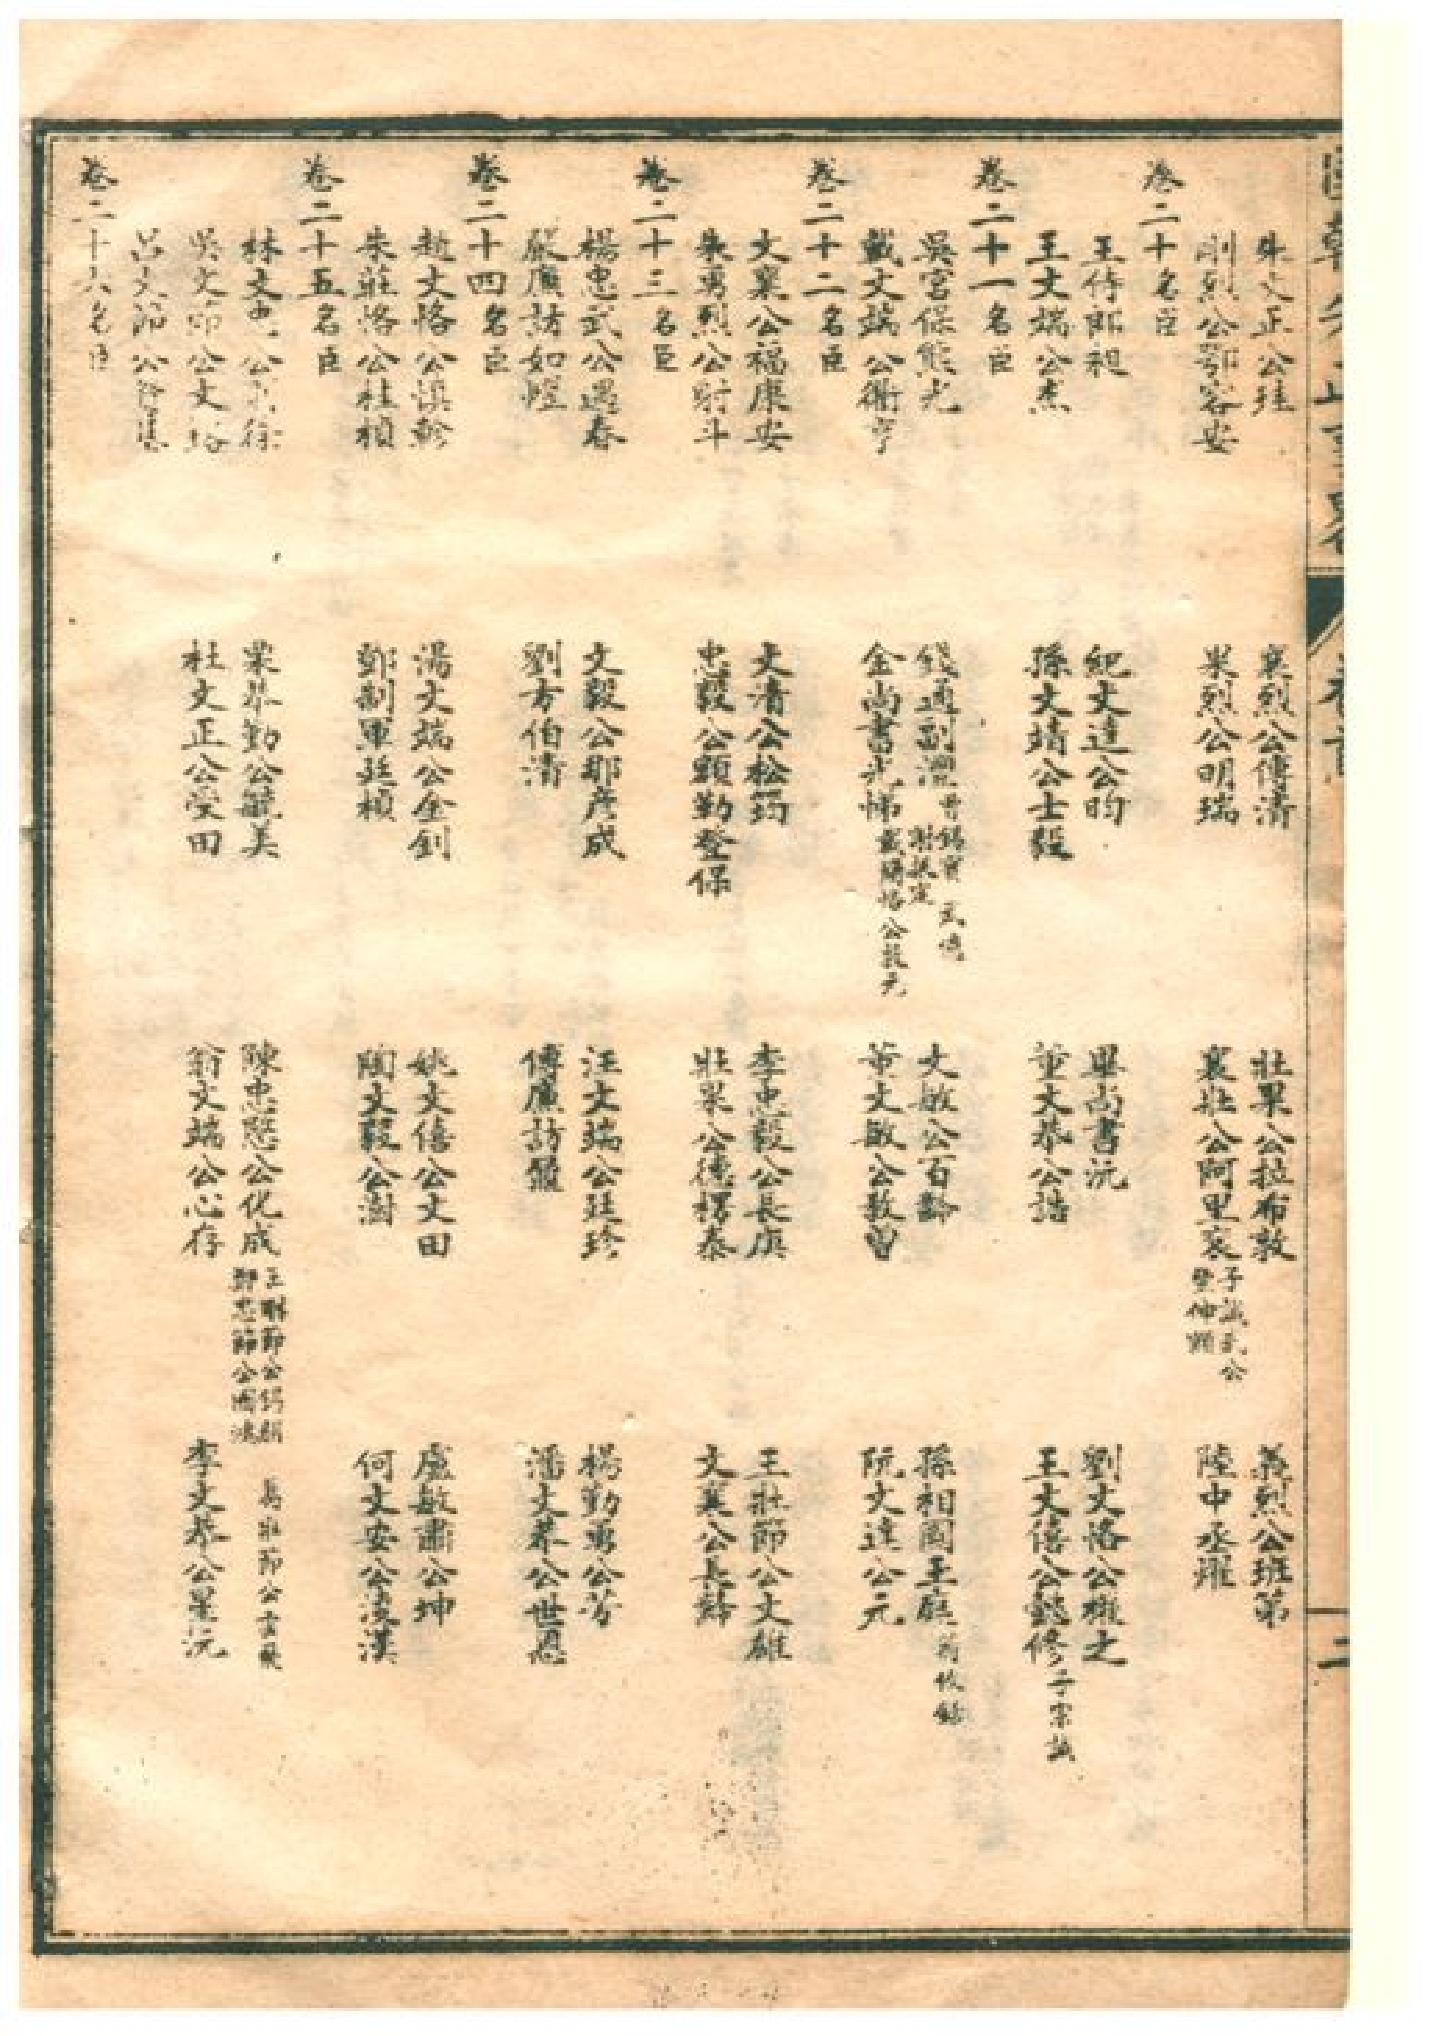 朱文正公珪　襄烈公傅清　壯果公拉布敦　義烈公班第
剛烈公鄂容安　果烈公明瑞　襄壯公阿里袞　子誠武公豐伸額　陸中丞燿
卷二十名臣
王侍郎昶　紀文達公昀　畢尚書沅　劉文恪公權之
王文端公杰　孫文靖公士毅　董文恭公誥　王文僖公懿修　子宗誠
卷二十一名臣
吳宮保熊光　錢通副灃　曹錫寶　謝振定　武億　文敏公百齡　孫相國玉庭　蔣攸銛
戴文端公衢亨　金尚書光悌　戴簡恪公敦元　董文敏公教曾　阮文達公元
卷二十二名臣
文襄公福康安　文清公松筠　李忠毅公長庚　王壯節公文雄
朱勇烈公射斗　忠毅公額勒登保　壯果公德楞泰　文襄公長齡
卷二十三名臣
楊忠武公遇春　文毅公那彥成　汪文端公廷珍　楊勤勇公芳
嚴廉訪如熤　劉方伯清　傅廉訪鼐　潘文恭公世恩
卷二十四名臣
趙文恪公慎畛　湯文端公金釗　姚文僖公文田　盧敏肅公坤
朱莊恪公桂楨　鄧制軍廷楨　陶文毅公澍　何文安公凌漢
卷二十五名臣
林文忠公則徐　栗恭勤公毓美　陳忠愍公化成　王剛節公錫朋　鄭忠節公國鴻　葛壯節公雲飛
吳文節公文鎔　杜文正公受田　翁文端公心存　李文恭公星沅
呂文節公賢基
卷二十六名臣
卷首
二